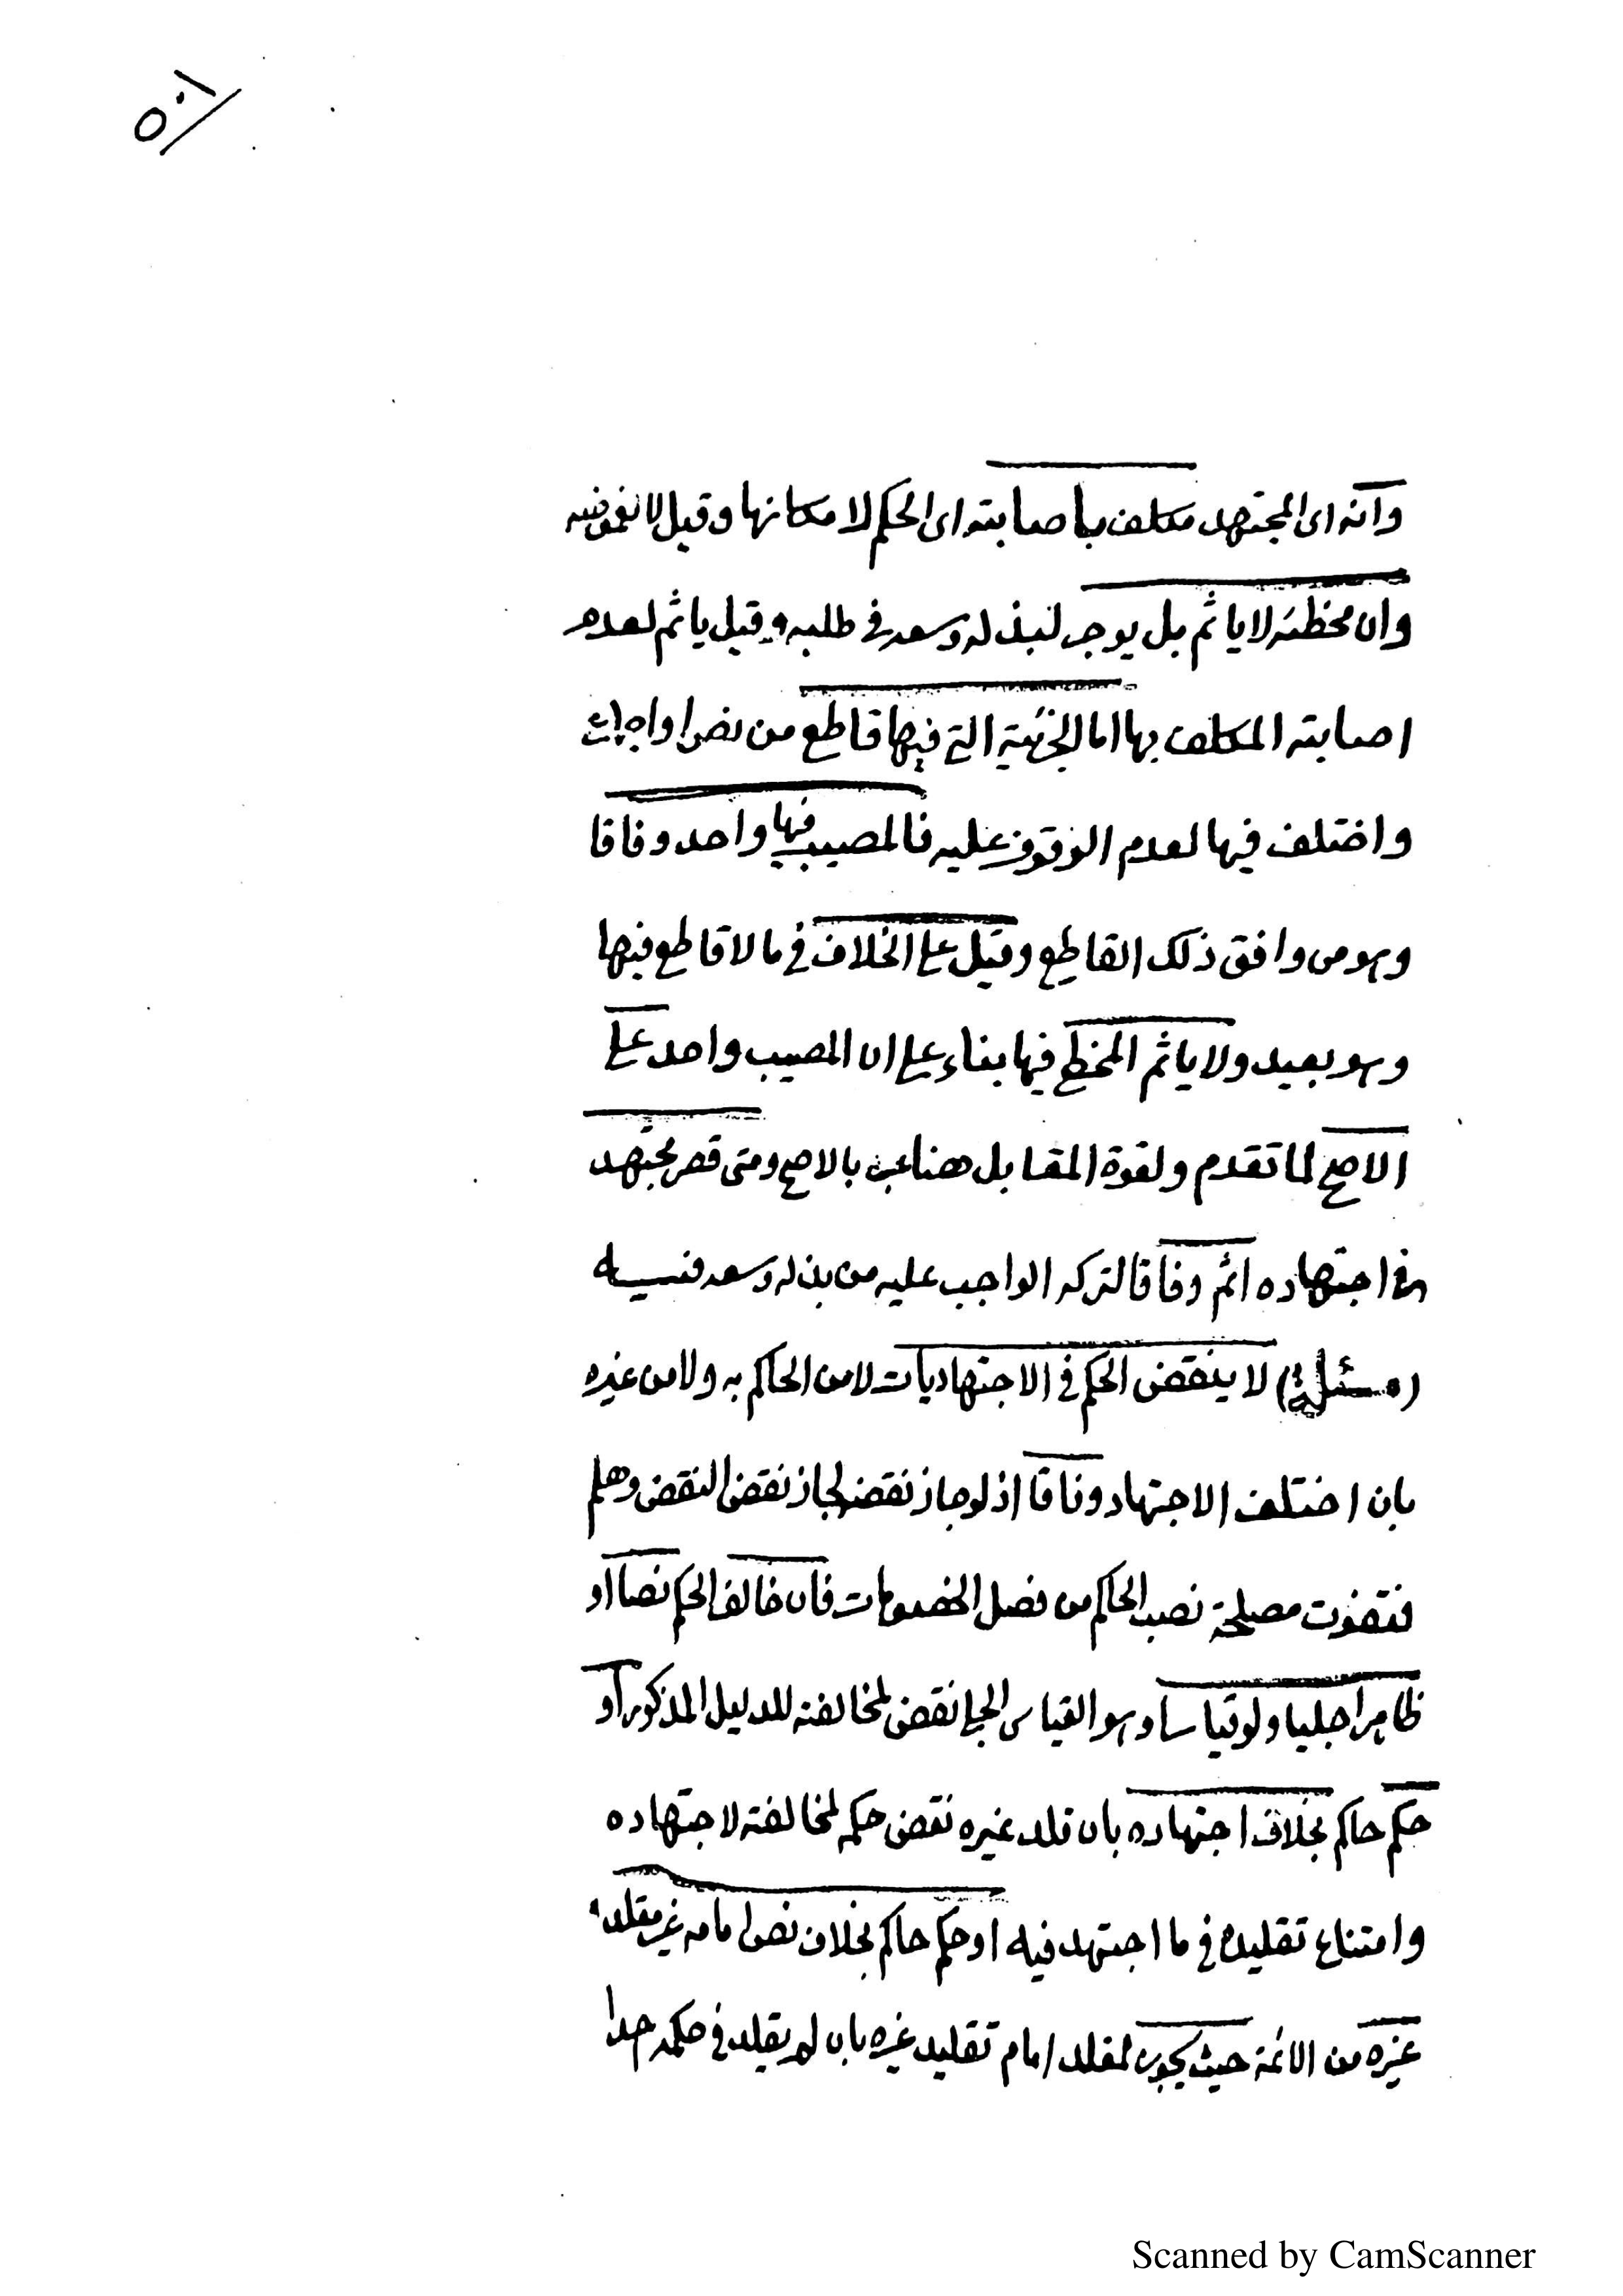 ٥٠١
وانه اى المجتهد مكلف باصابته اى الحكم لا مكانها وقيل لا لغموضه
وان مخطئه لا ياثم بل يوجر لبذله وسعه فى طلبه وقيل ياثم لعدم
اصابته المكلف بها اما الجزئية التى فيها قاطع من نص او اجماع
واختلف فيها لعدم الوقوف عليه فالمصيب فيها واحد وفاقا
وهو من وافق ذلك القاطع وقيل على الخلاف فى ما لا قاطع فيها
وهو بعيد ولا ياثم المخطى فيها بناء على ان المصيب واحد على
الاصح لما تقدم ولقوة المقابل هنا عبر بالاصح ومتى قصر مجتهد
فى اجتهاده اثم وفاقا لتركه الواجب عليه من بذله وسعه فيه
(مسئلة) لا ينقض الحكم فى الاجتهاديات لا من الحاكم به ولا من غيره
بان اختلف الاجتهاد وفاقا اذ لو جاز نقضه لجاز نقض النقض وهلم
فتفوت مصلحة نصب الحاكم من فصل الخصومات فان خالف الحكم نصا او
ظاهرا جليا ولو قياسا وهو القياس الجلى نقض لمخالفته للدليل المذكور او
حكم حاكم بخلاف اجتهاده بان قلد غيره نقض حكمه لمخالفته لاجتهاده
وامتناع تقليده فى ما اجتهد فيه او حكم حاكم بخلاف نص امامه غير مقلد
غيره من الائمة حيث يجوز لمقلد امام تقليد غيره بان لم يقلد فى حكمه احدا
Scanned by CamScanner